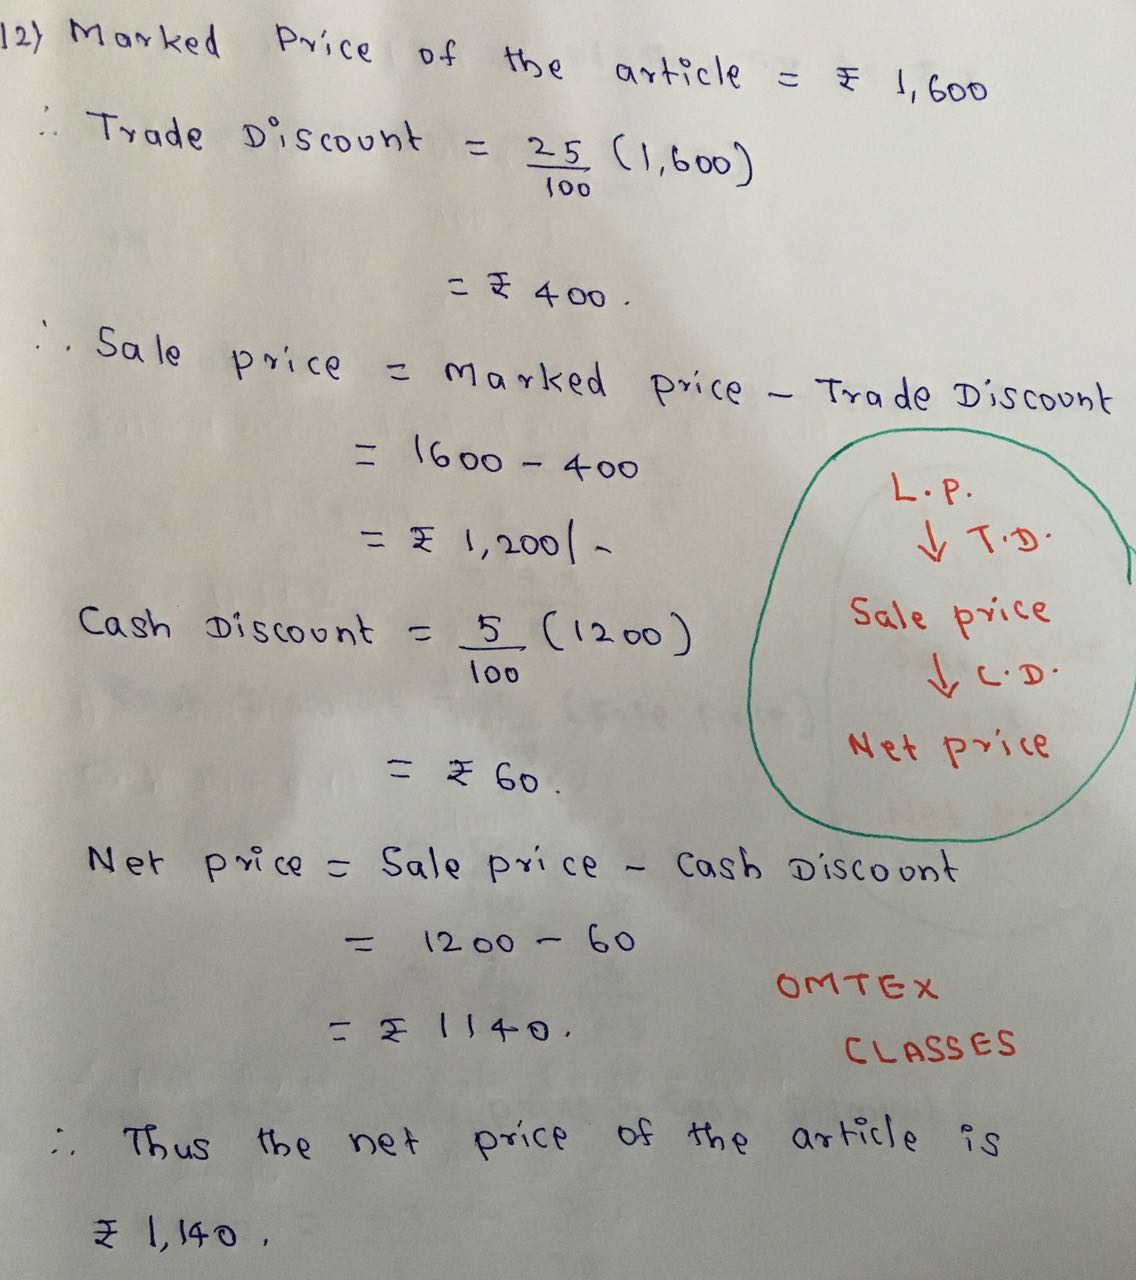 12) Marked Price of the article = ₹ 1,600
∴ Trade Discount = 25/100 (1,600)
= ₹ 400.
∴ Sale price = Marked price - Trade Discount
= 1600 - 400
= ₹ 1,200/-
Cash Discount = 5/100 (1200)
= ₹ 60.
Net price = Sale price - Cash Discount
= 1200 - 60
= ₹ 1140.
∴ Thus the net price of the article is
₹ 1,140.
L.P.
↓ T.D.
Sale price
↓ C.D.
Net price
OMTEX
CLASSES